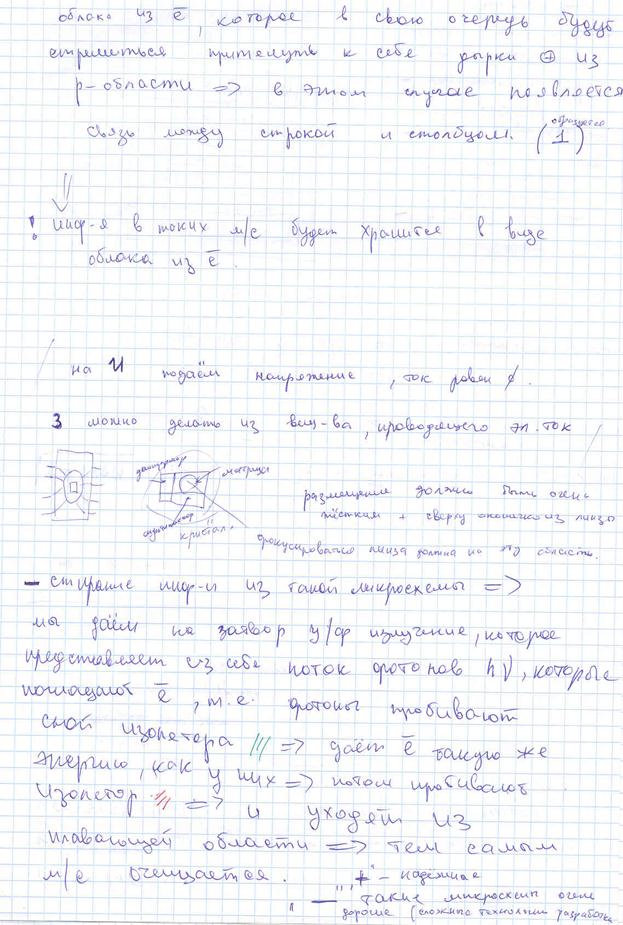 облако из ē, которое в свою очередь будут
стремиться притянуть к себе дырки ⊕ из
p-области => в этом случае появляется
связь между строкой и столбцом. (1)
образуется
! инф-я в таких м/с будет хранится в виде
облака из ē.
на И подаём напряжение, ток равен ∅.
3 можно делать из вещ-ва, проводящего эл. ток
дешифратор
матрица
кристал.
размещение должно быть очень
жёстким + сверху окошечко из линзы
фокусироваться линза должна на эту область.
– стирание инф-и из такой микросхемы =>
мы даём на затвор у/ф излучение, которое
представляет из себя поток фотонов hν, которые
поглащают ē, т.е. фотоны пробивают
слой изолятора /// => даёт ē такую же
энергию, как у них => потом пробивают
изолятор /// => и уходят из
плавающей области => тем самым
м/с очищается. "+" - надёжное
"–" такие микросхемы очень
дорогие (сложные технологии разработки